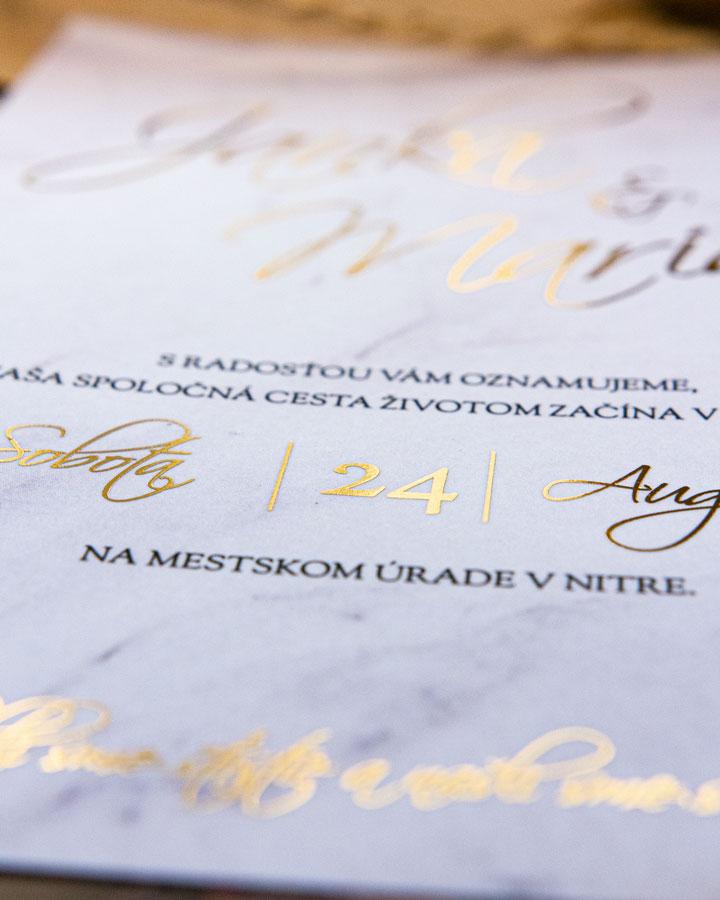 Janka &
Mari
S RADOSŤOU VÁM OZNAMUJEME,
AŠA SPOLOČNÁ CESTA ŽIVOTOM ZAČÍNA V
Sobota | 24 | Aug
NA MESTSKOM ÚRADE V NITRE.